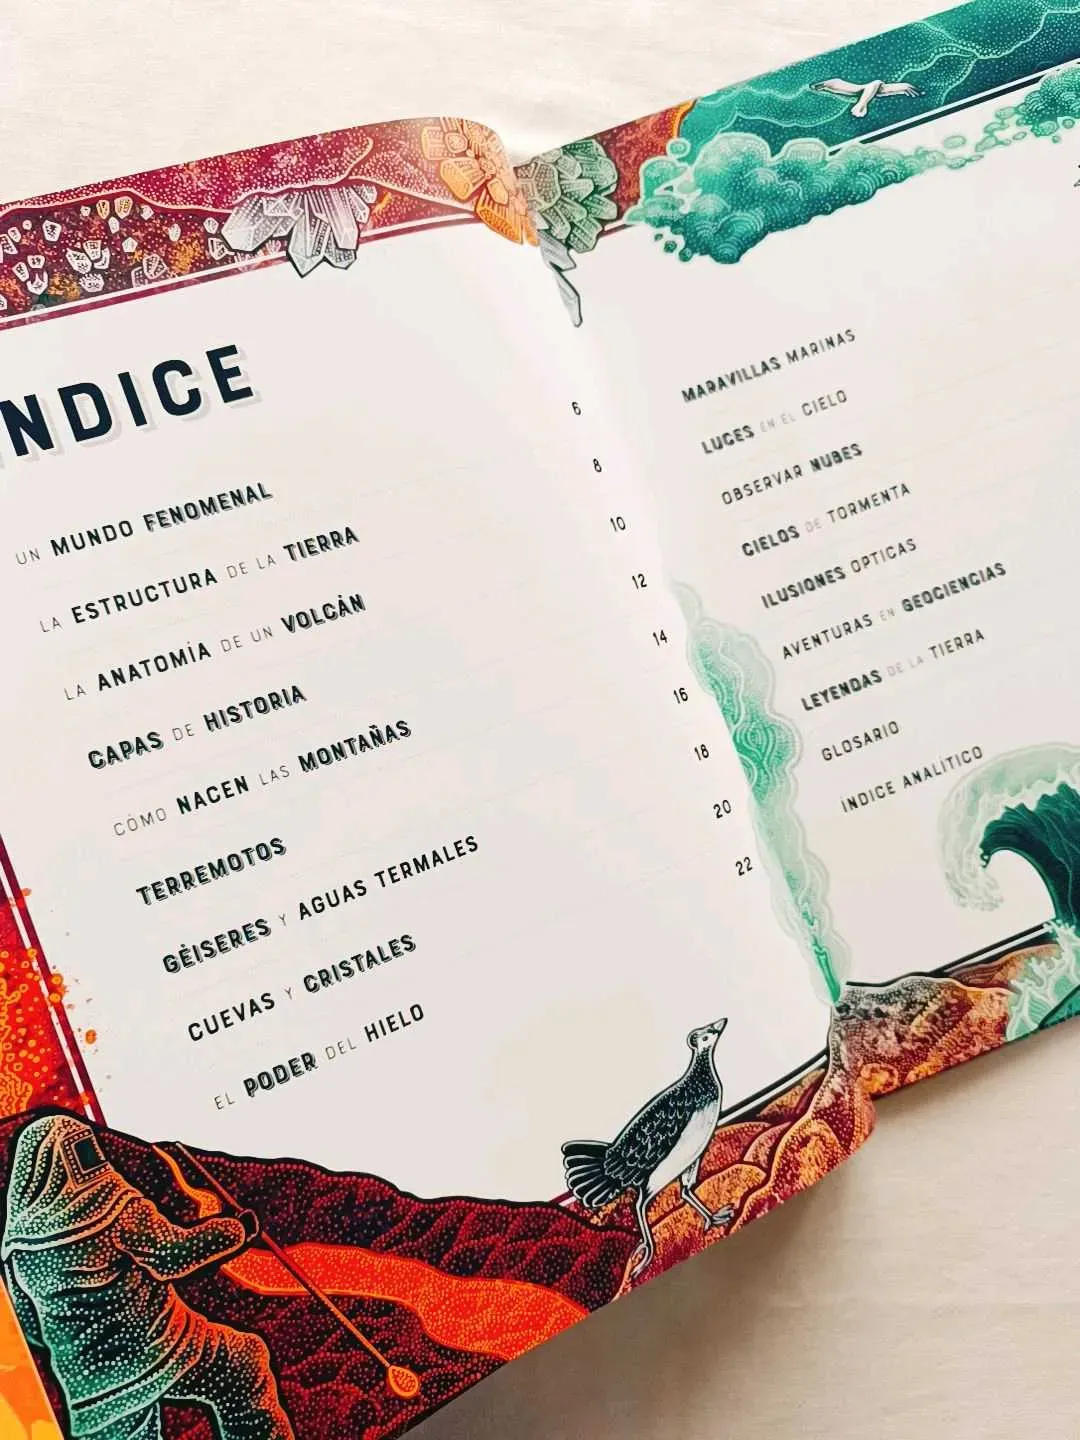 NDICE
UN MUNDO FENOMENAL 6
LA ESTRUCTURA DE LA TIERRA 8
LA ANATOMÍA DE UN VOLCÁN 10
CAPAS DE HISTORIA 12
CÓMO NACEN LAS MONTAÑAS 14
TERREMOTOS 16
GÉISERES Y AGUAS TERMALES 18
CUEVAS Y CRISTALES 20
EL PODER DEL HIELO 22
MARAVILLAS MARINAS
LUCES EN EL CIELO
OBSERVAR NUBES
CIELOS DE TORMENTA
ILUSIONES ÓPTICAS
AVENTURAS EN GEOCIENCIAS
LEYENDAS DE LA TIERRA
GLOSARIO
ÍNDICE ANALÍTICO